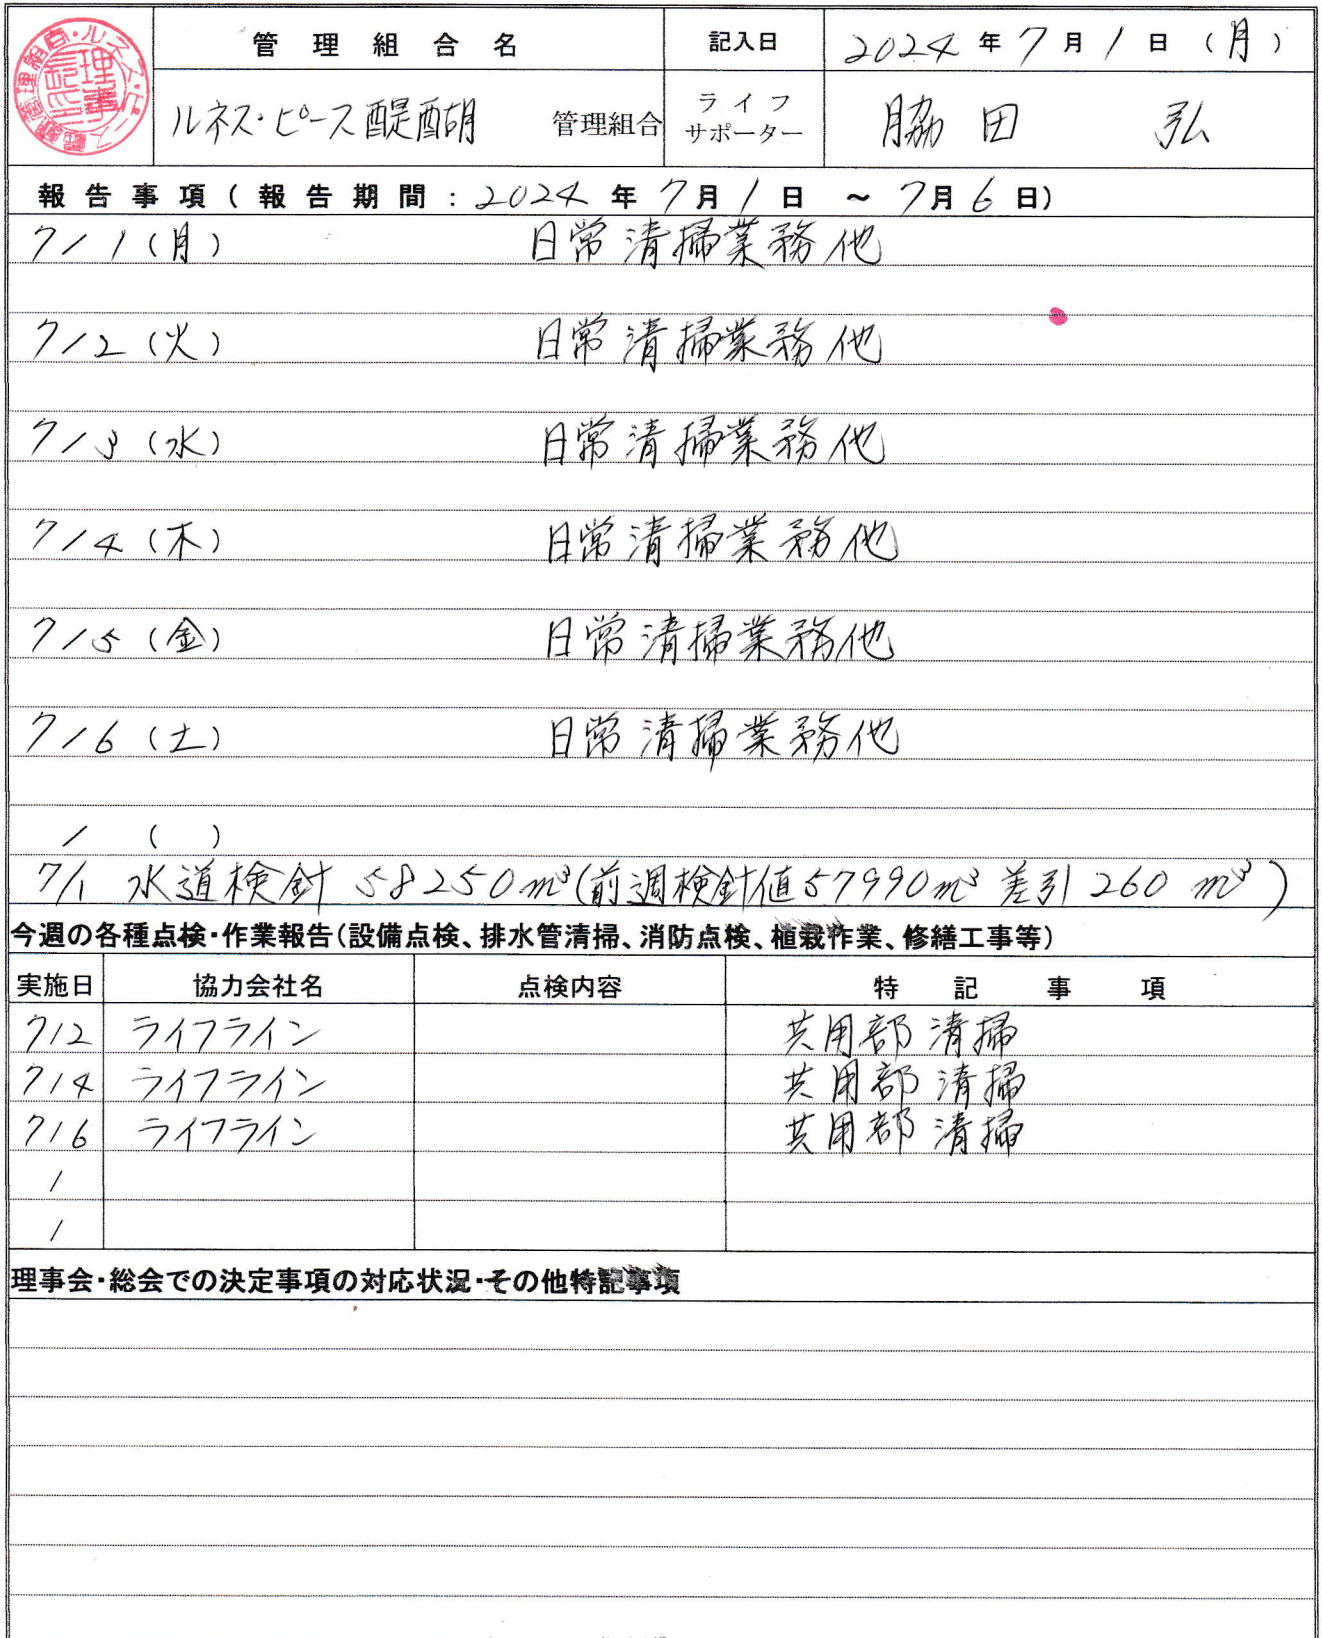 管理組合名 記入日 2024年7月1日(月)
ルネス・ピース醍醐 管理組合 ライフサポーター 脇田 弘
報告事項(報告期間:2024年7月1日 ~7月6日)
7/1(月) 日常清掃業務他
7/2(火) 日常清掃業務他
7/3(水) 日常清掃業務他
7/4(木) 日常清掃業務他
7/5(金) 日常清掃業務他
7/6(土) 日常清掃業務他
/ ( )
7/1 水道検針 58250m³(前週検針値57990m³ 差引260 m³)
今週の各種点検・作業報告(設備点検、排水管清掃、消防点検、植栽作業、修繕工事等)
実施日 協力会社名 点検内容 特記事項
7/2 ライフライン 共用部清掃
7/4 ライフライン 共用部清掃
7/6 ライフライン 共用部清掃
/
/
理事会・総会での決定事項の対応状況・その他特記事項